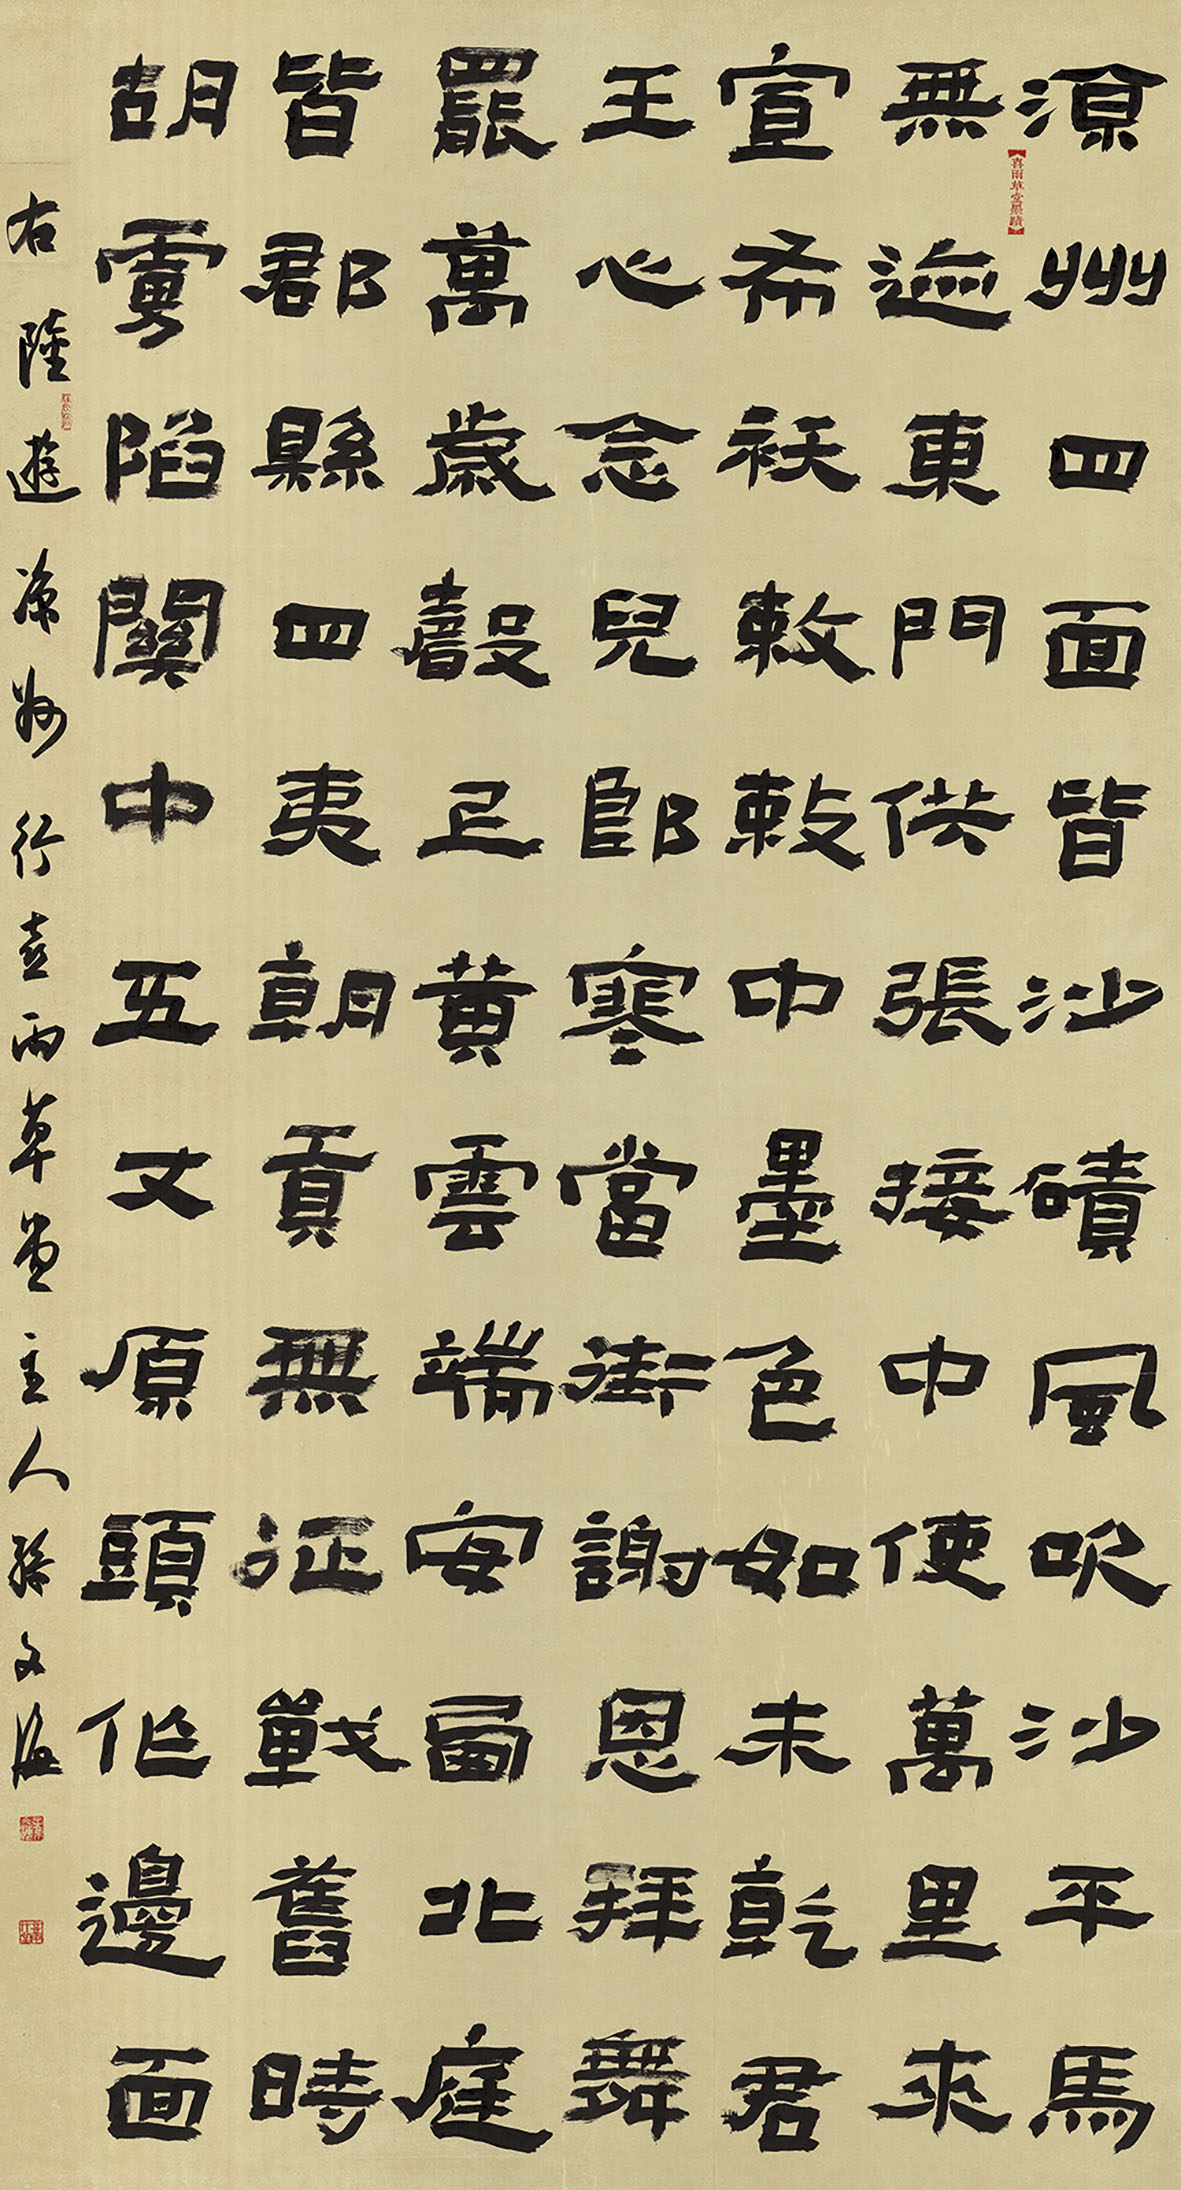 涼州四面皆沙磧風吹沙平馬
喜雨草堂墨蹟
無迹東門供張接中使萬里來
宣布袄敕敕中墨色如未乾君
王心念兒郎寒當街謝恩拜舞
罷萬歲聲正黃雲端安西北庭
皆郡縣四夷朝貢無征戰舊時
胡虜陷關中五丈原頭作邊面
右陸遊涼州行喜雨草堂主人孫文